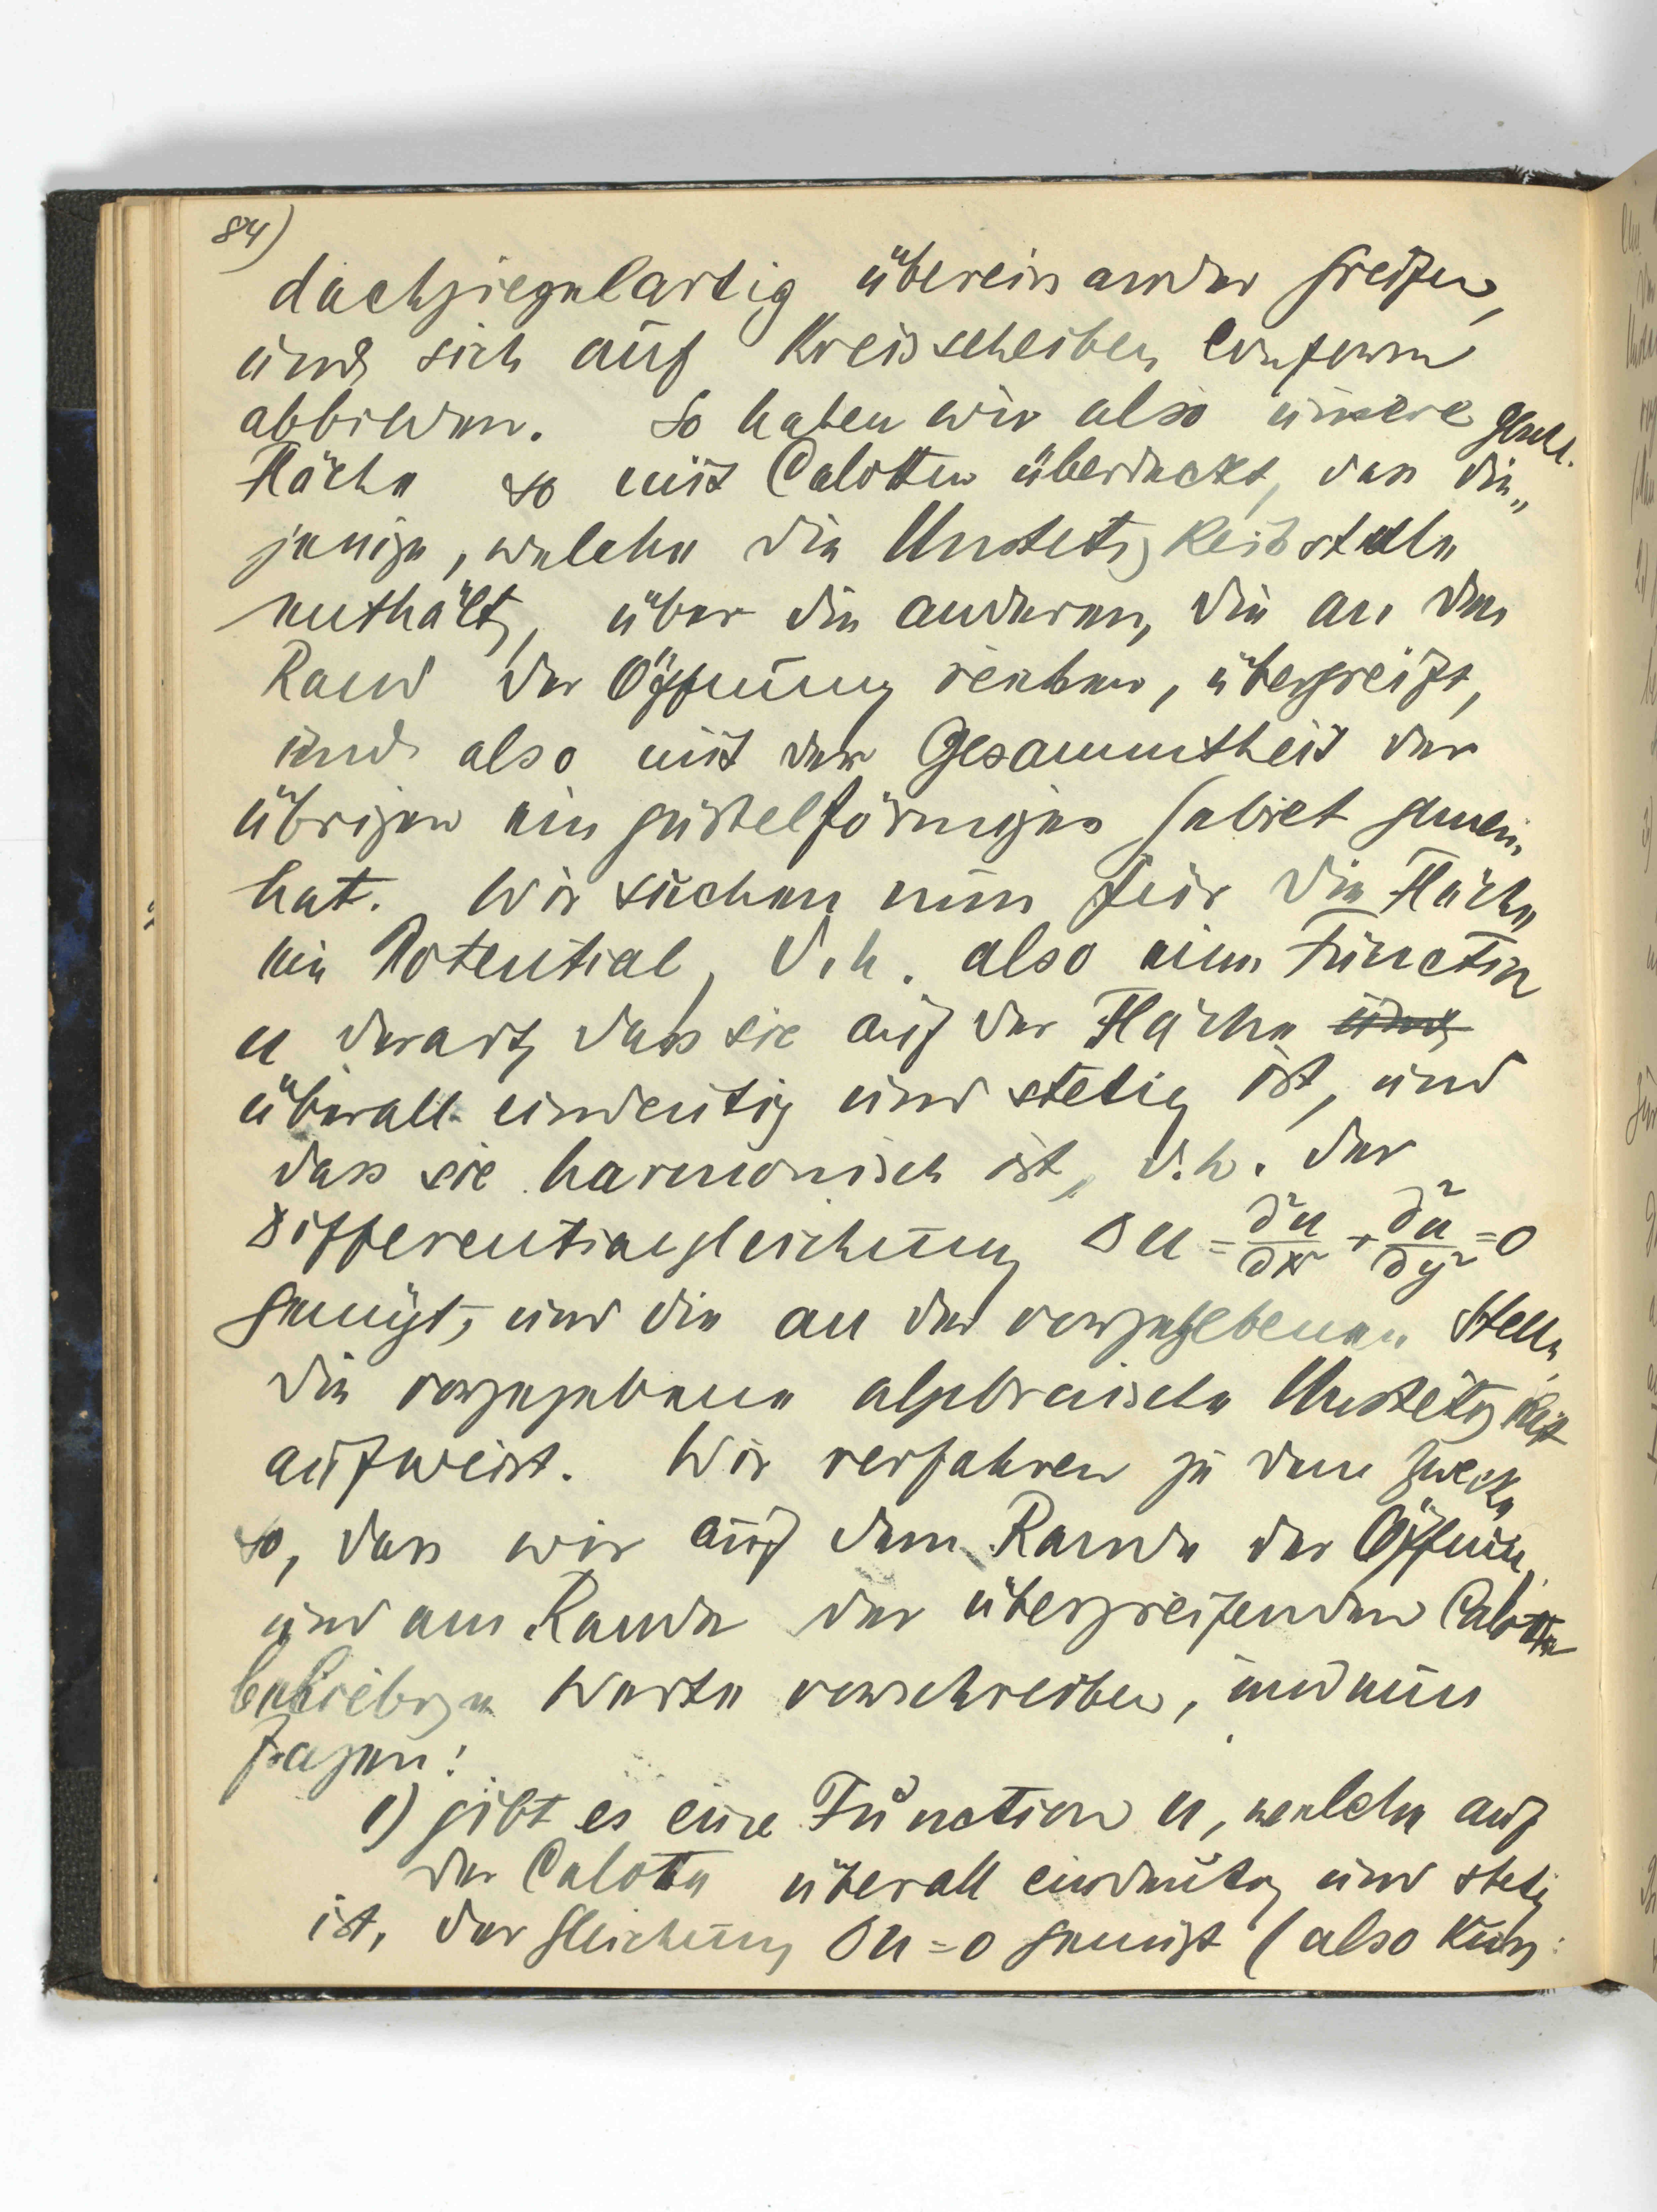 84)
dachziegelartig übereinander greifen,
und sich auf Kreisscheiben conform
abbilden. So haben wir also unsere geschl.
Fläche so mit Calotten überdeckt, dass die„
jenige, welche die Unstetigkeitsstelle
enthält, über die anderen, die an den
Rand der Öffnung reichen, übergreift,
und also mit der Gesammtheit der
übrigen ein gürtelförmiges Gebiet gemein
hat. Wir suchen nun für die Fläche
ein Potential, d.h. also eine Function
u derart, dass sie auf der Fläche und
überall eindeutig und stetig ist, und
dass sie harmonisch ist, d.h. der
Differentialgleichung Δu = ∂²u/∂x² + ∂²u/∂y² = 0
genügt, und die an der vorgegebenen Stelle
die vorgegebene algebraische Unstetigkeit
aufweist. Wir verfahren zu dem Zwecke
so, dass wir auf dem Rande der Öffnung
und am Rande der übergreifenden Calotte
beliebige Werte vorschreiben, und nun
fragen:
1) gibt es eine Function u, welche auf
der Calotte überall eindeutig und stetig
ist, der Gleichung Δu = 0 genügt (also kein: